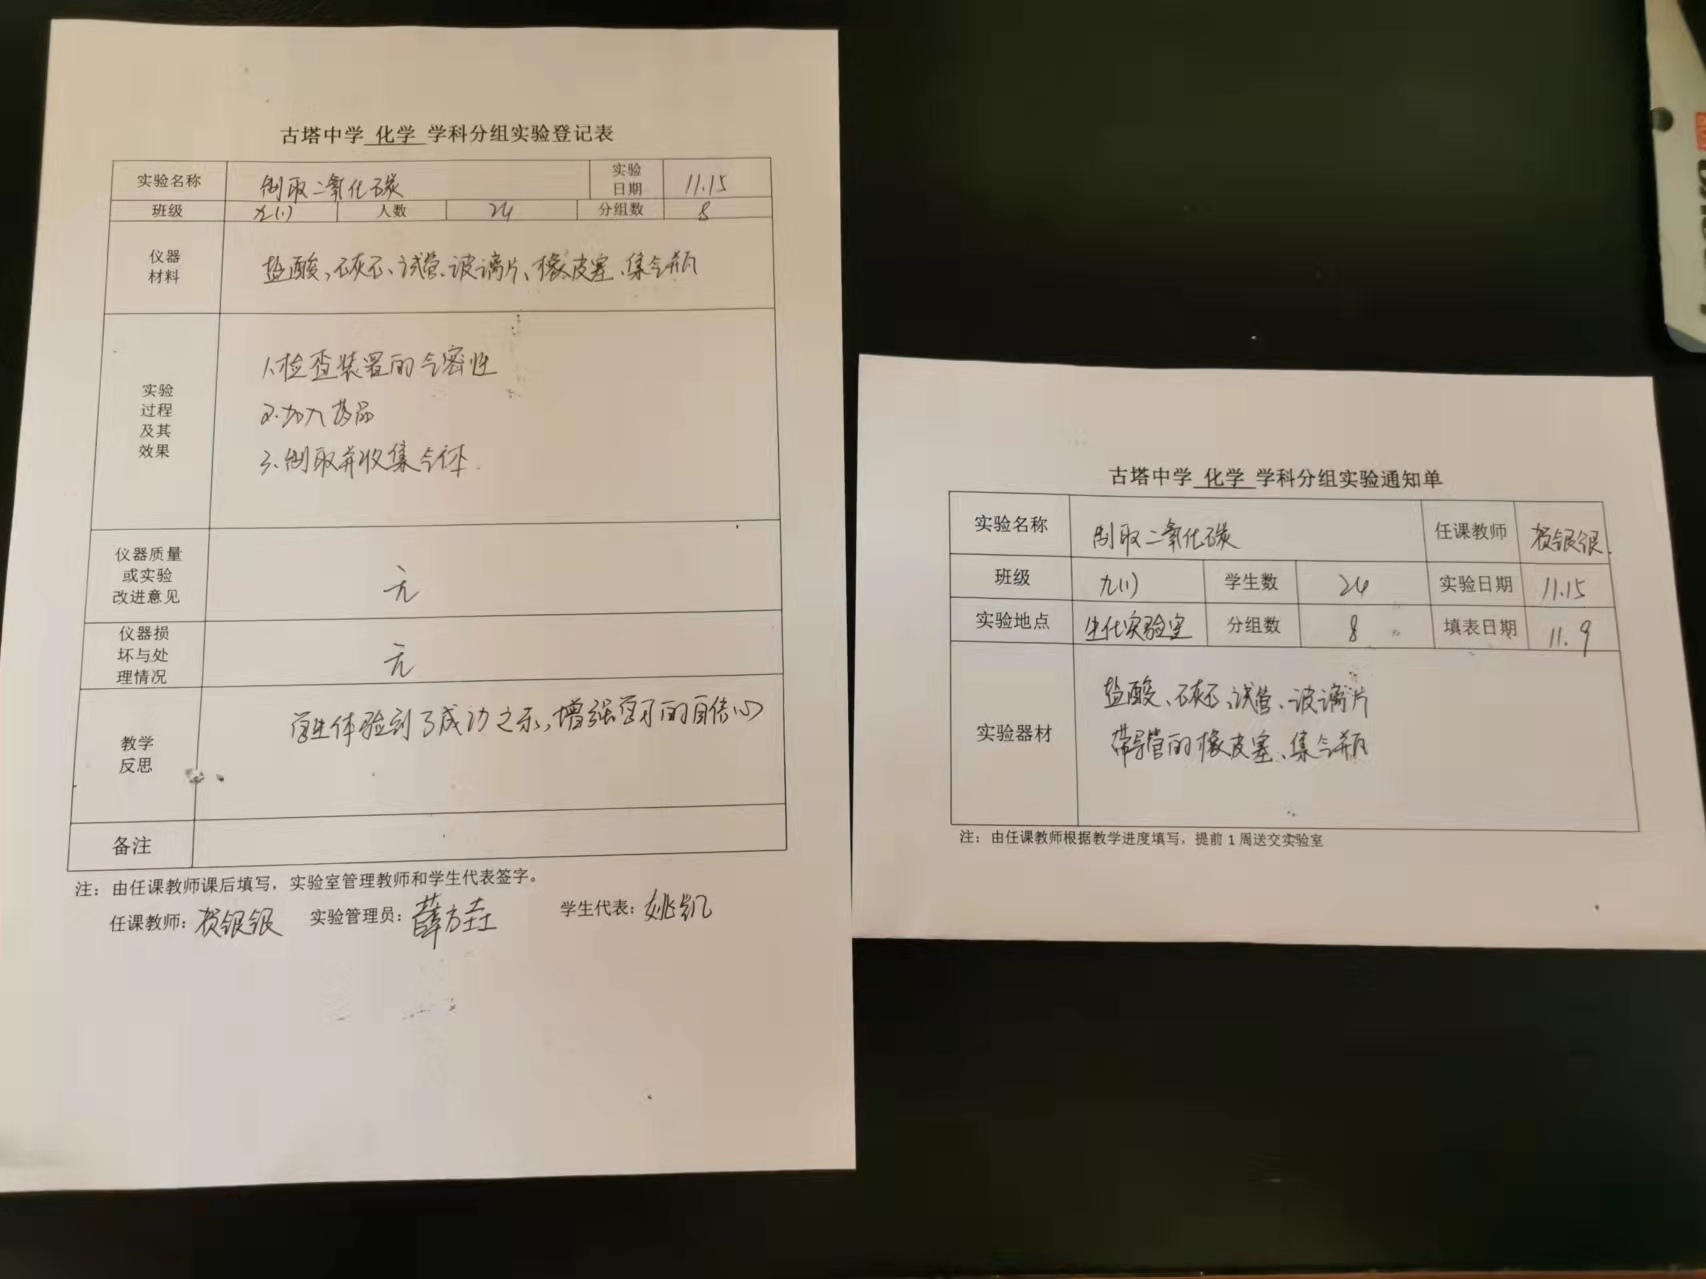 古塔中学 化学 学科分组实验登记表
实验名称 制取二氧化碳 实验日期 11.15
班级 九(1) 人数 24 分组数 8
仪器材料 盐酸、石灰石、试管、玻璃片、橡皮塞、集气瓶
实验过程及其效果
1.检查装置的气密性
2.加入药品
3.制取并收集气体.
仪器质量或实验改进意见 无
仪器损坏与处理情况 无
教学反思 学生体验到了成功之乐,增强学习的自信心
备注
注：由任课教师课后填写，实验室管理教师和学生代表签字。
任课教师：银银 实验管理员：薛方 学生代表：姚凯
古塔中学 化学 学科分组实验通知单
实验名称 制取二氧化碳 任课教师 银银
班级 九(1) 学生数 24 实验日期 11.15
实验地点 生化实验室 分组数 8 填表日期 11.9
实验器材 盐酸、石灰石、试管、玻璃片
带导管的橡皮塞、集气瓶
注：由任课教师根据教学进度填写，提前1周送交实验室